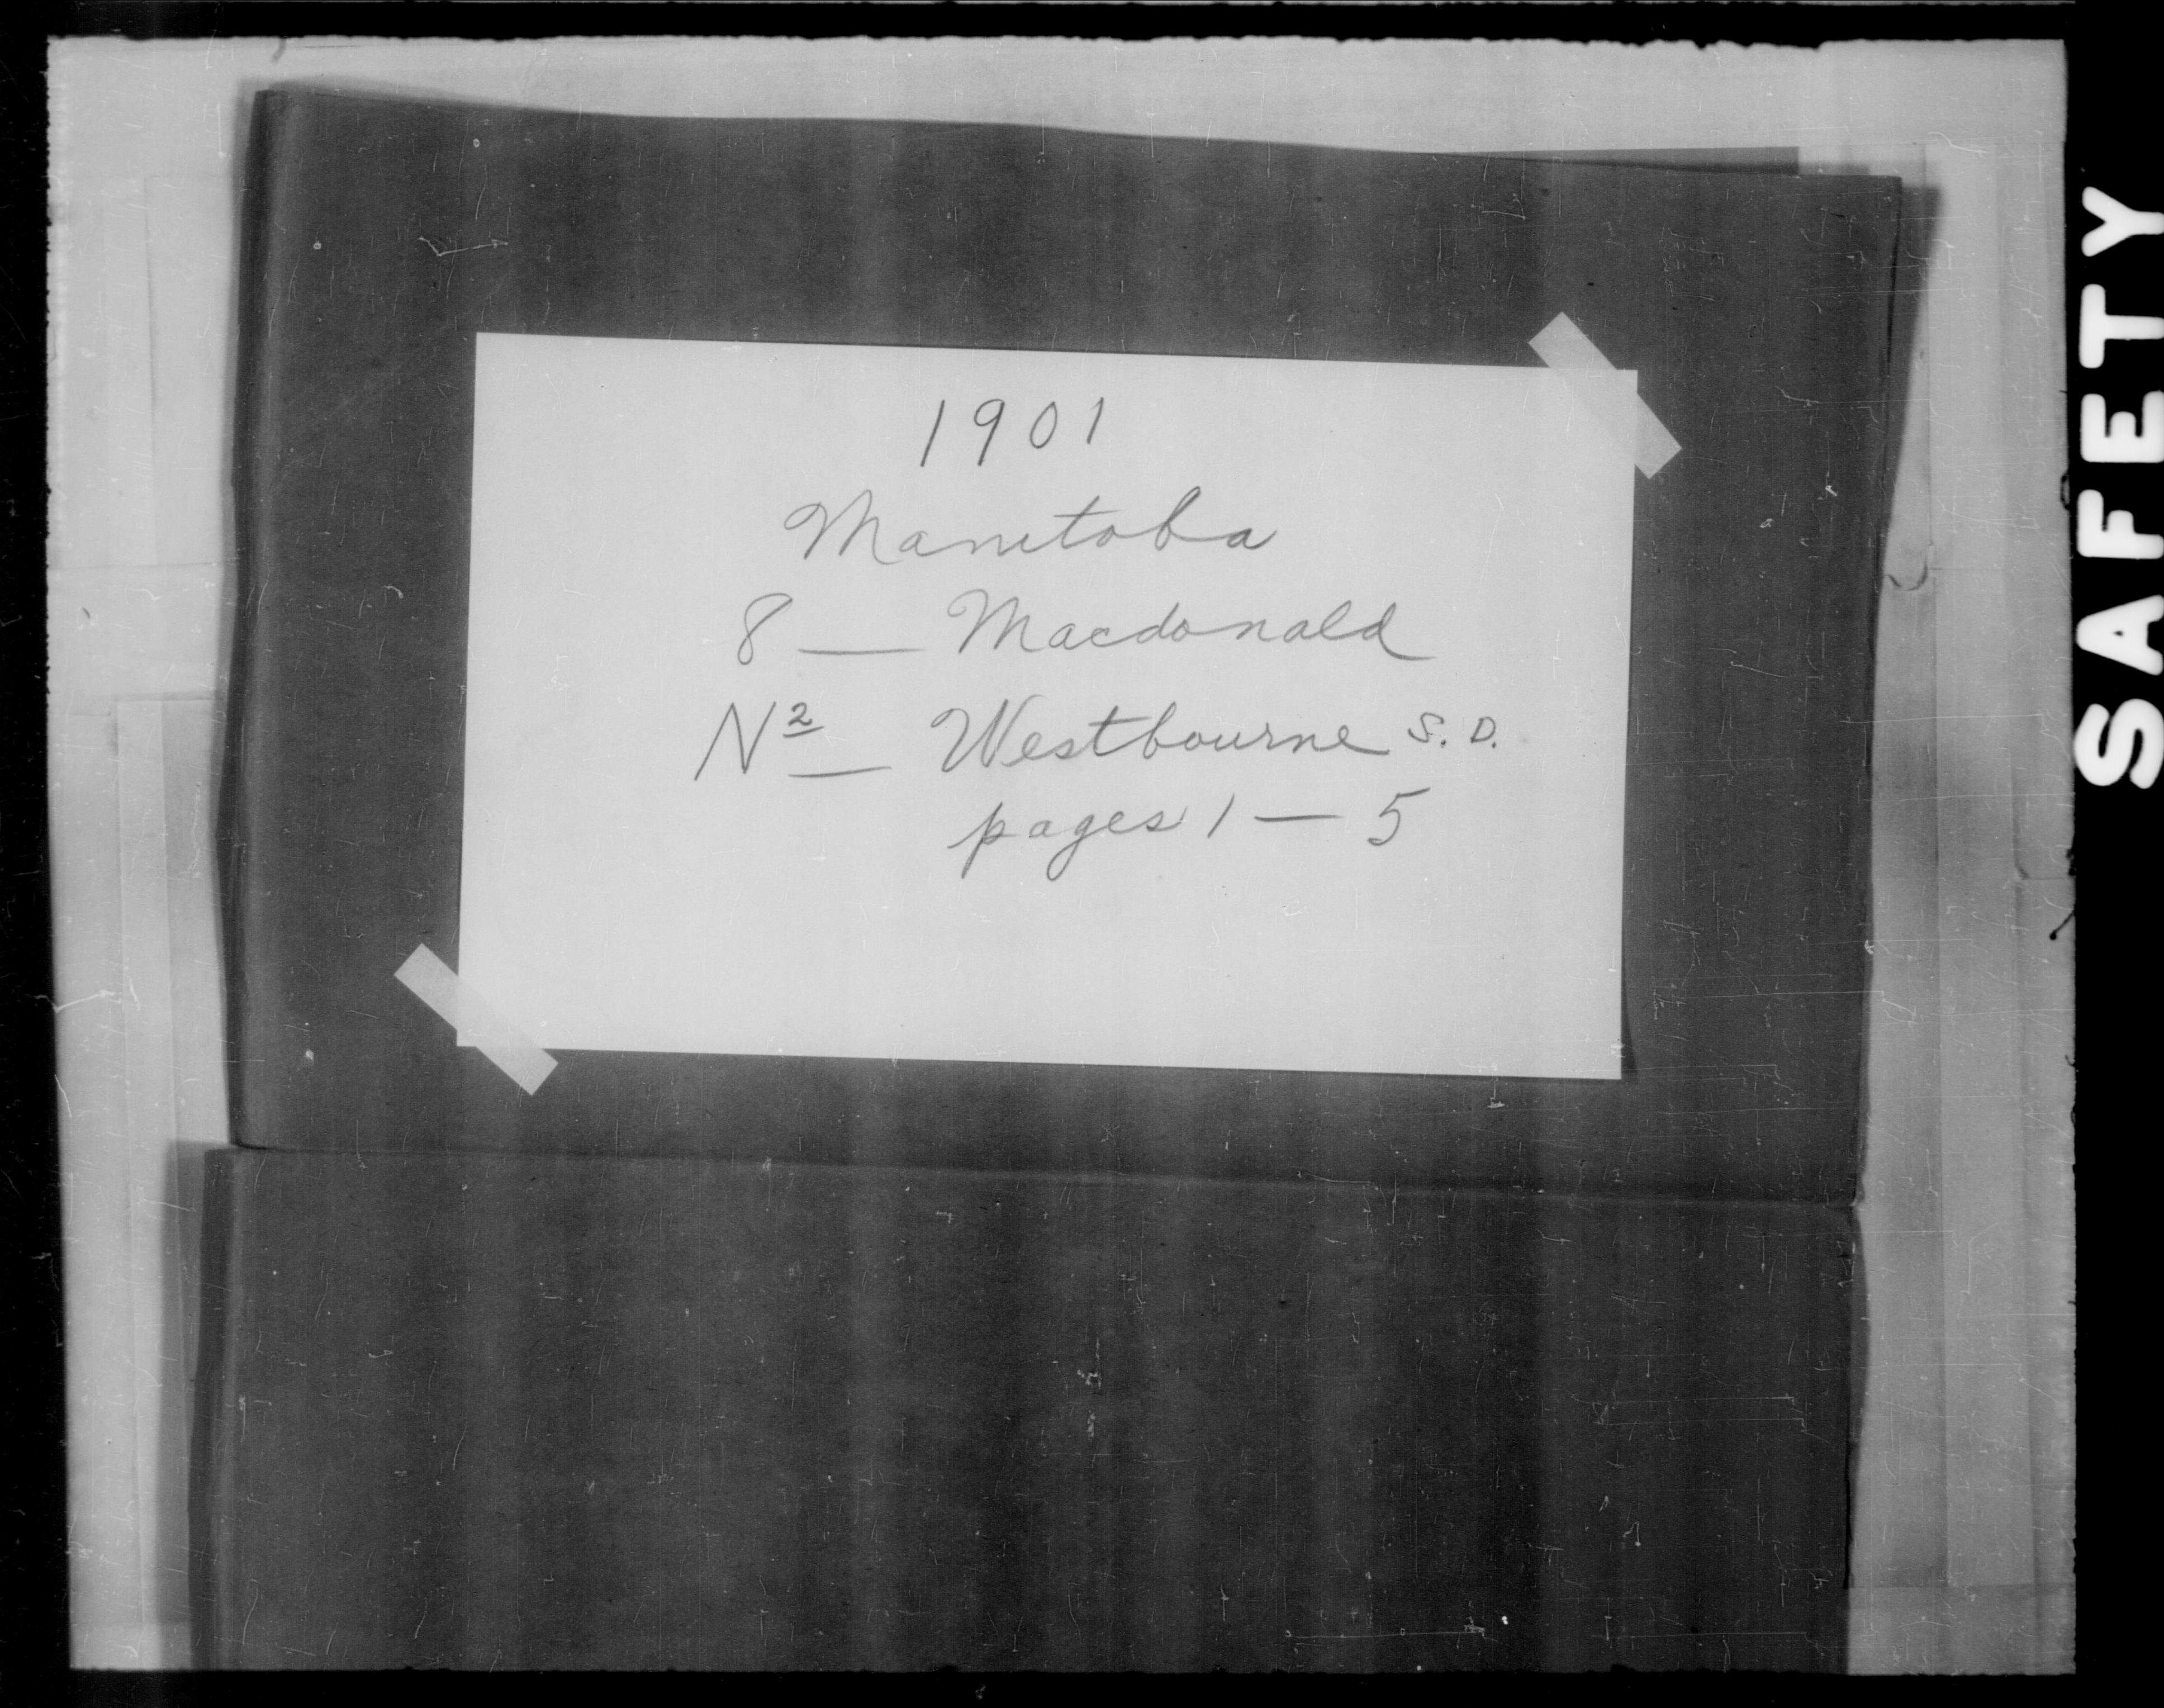 1901
Manitoba
8 — Macdonald
N² — Westbourne S. D.
pages 1 — 5
SAFETY